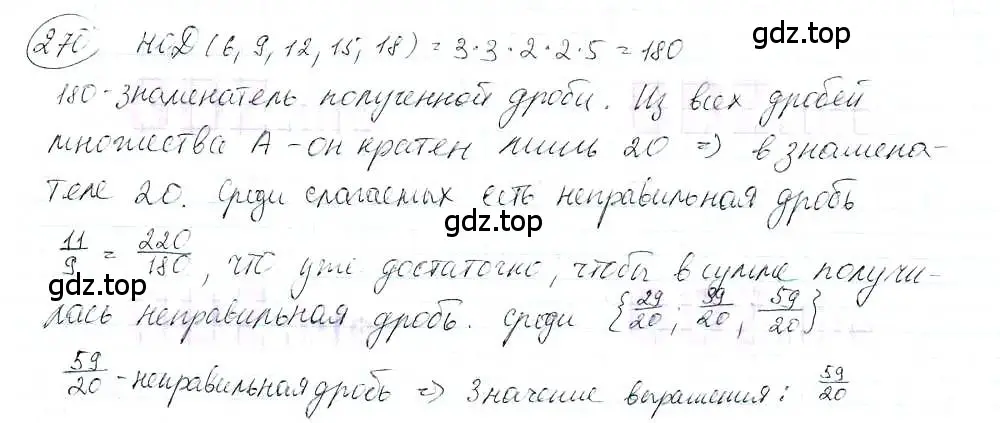 270 НОД (6, 9, 12, 15, 18) = 3·3·2·2·5 = 180
180 - знаменатель полученной дроби. Из всех дробей
множества А - он кратен лишь 20 => в знамена-
теле 20. Среди слагаемых есть неправильная дробь
11/9 = 220/180, что уже достаточно, чтобы в сумме получи-
лась неправильная дробь. Среди {29/20; 99/20; 59/20}
59/20 - неправильная дробь => Значение выражения: 59/20
gdz.top
gdz.top
gdz.top
gdz.top
gdz.top